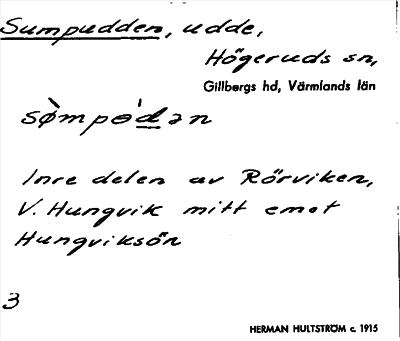 Sumpudden, udde,
Högeruds sn,
Gillbergs hd, Värmlands län
sø̀mpo'd̲ən
Inre delen av Rörviken,
V. Hungvik mitt emot
Hungviksön
3
HERMAN HULTSTRÖM c. 1915